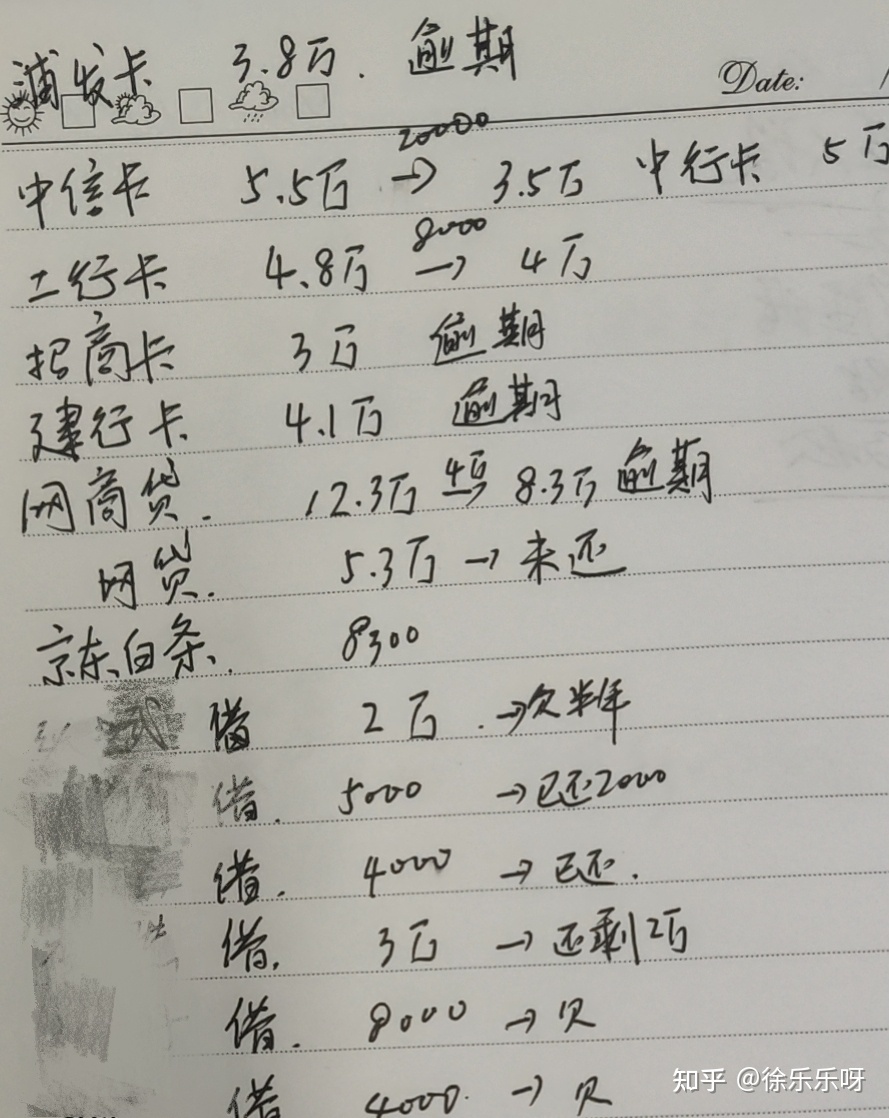 浦发卡 3.8万. 逾期
Date:
20000
中信卡 5.5万 → 3.5万 中行卡 5万
8000
工行卡 4.8万 → 4万
招商卡 3万 逾期
建行卡 4.1万 逾期
4万
网商贷. 12.3万 → 8.3万 逾期
网贷. 5.3万 → 未还
京东白条. 8300
借 2万. →欠半年
借. 5000 →已还2000
借. 4000 →已还.
借. 3万 →还剩2万
借. 8000 →欠
借 4000. →欠
知乎 @徐乐乐呀